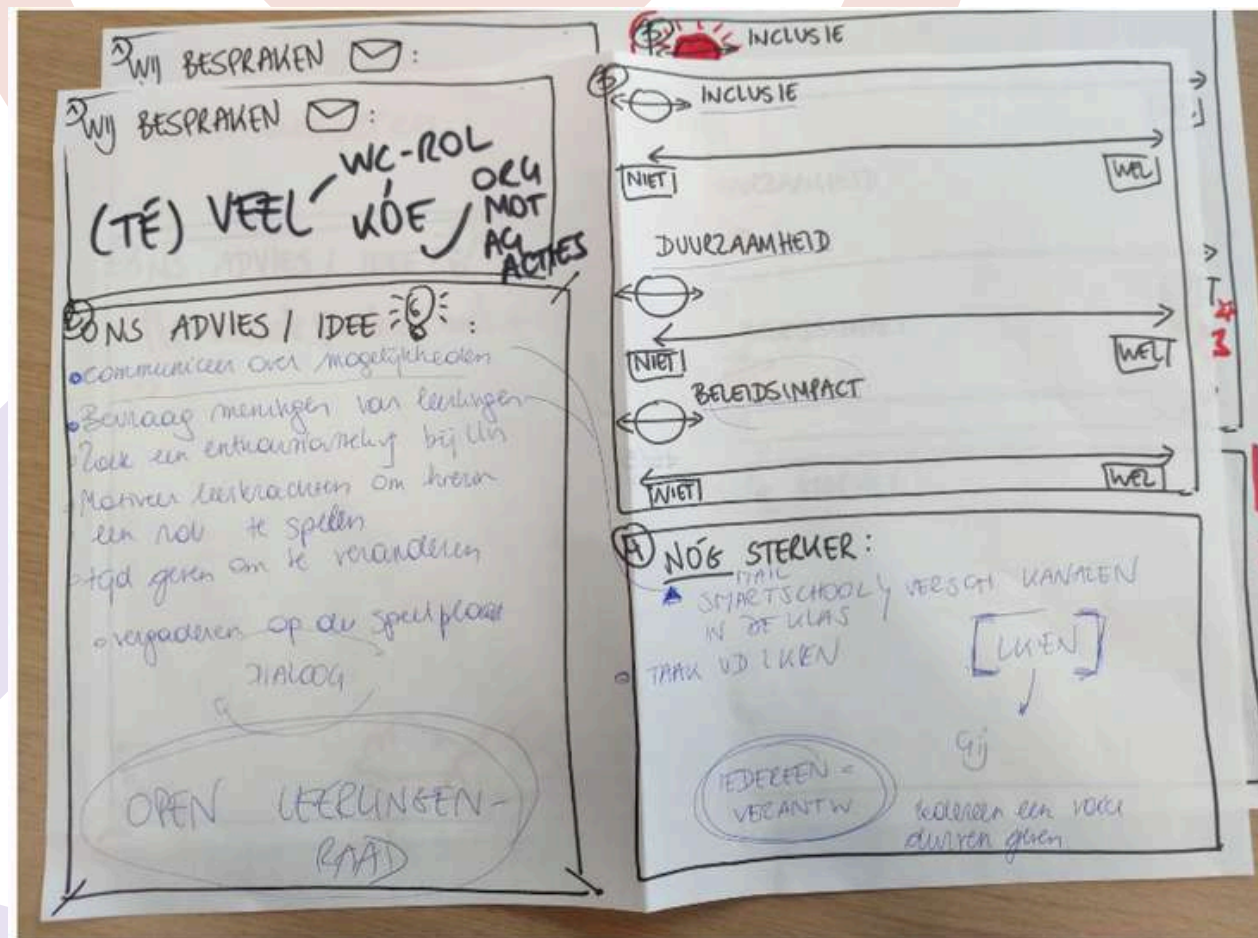 1 WIJ BESPRAKEN :
1 WIJ BESPRAKEN :
(TÉ) VEEL WC-ROL
KOE ORG
MOT
AG
ACTIES
2 ONS ADVIES / IDEE :
communiceer over mogelijkheden
Bevraag meningen van leerlingen
Zoek een bij lln
Motiveer leerkrachten om hierin
een rol te spelen
tijd geven om te veranderen
vergaderen op de speelplaats
DIALOOG
OPEN LEERLINGEN-
RAAD
INCLUSIE
3 INCLUSIE
NIET WEL
DUURZAAMHEID
NIET WEL
BELEIDSIMPACT
NIET WEL
4 NÓG STERKER:
MAIL
SMARTSCHOOL VERSCH KANALEN
IN DE KLAS
TAAK VD LKEN
[LKEN]
Gij
IEDEREEN =
VERANTW
iedereen een
durven geven